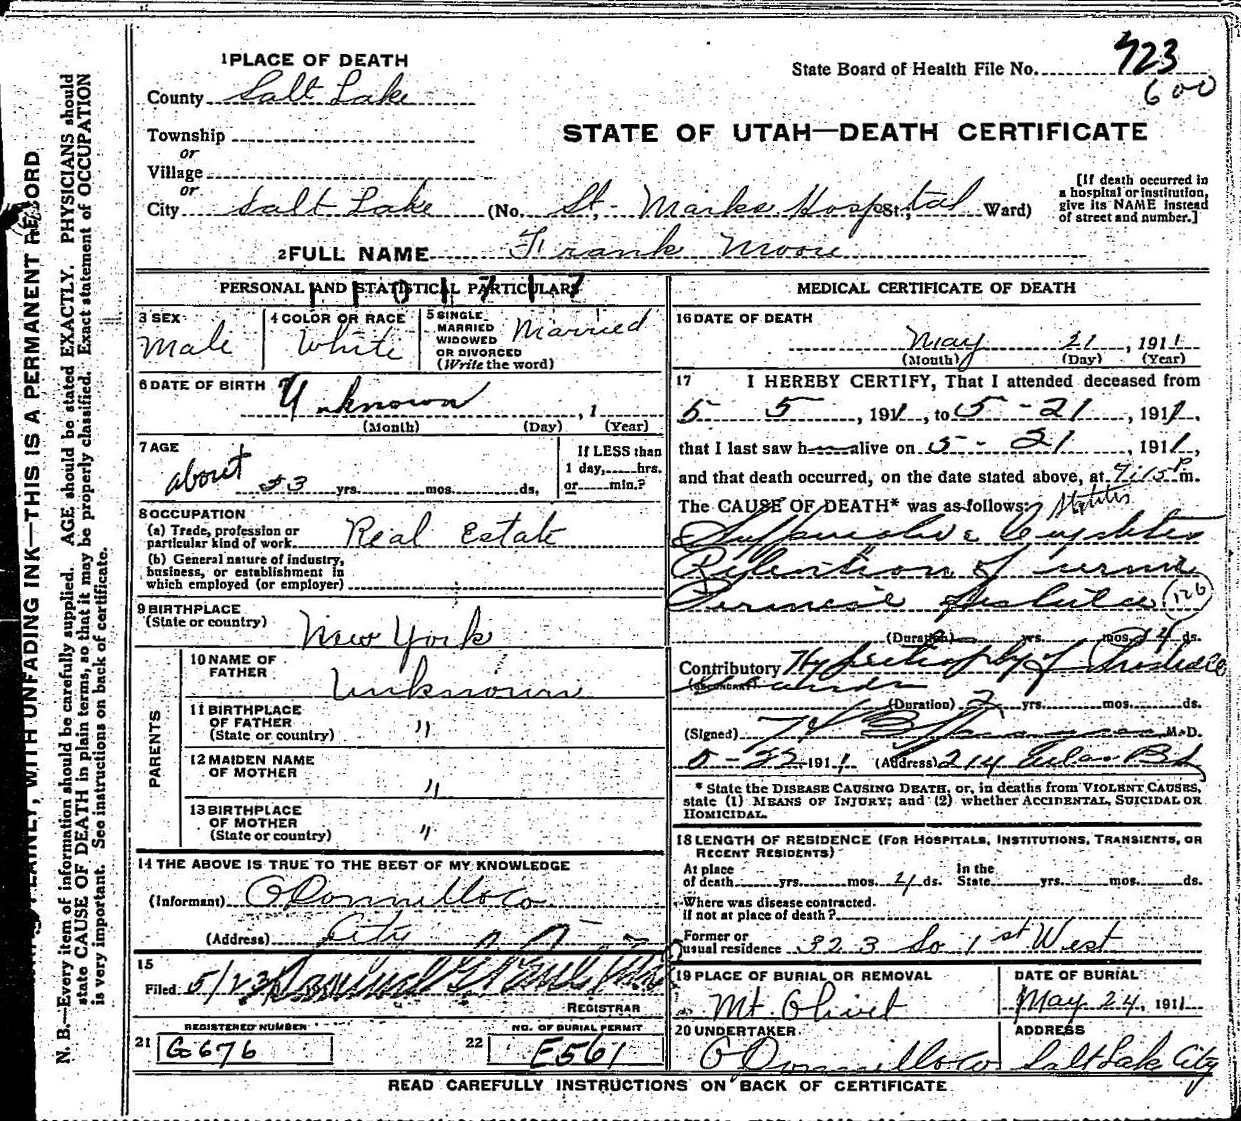 1 PLACE OF DEATH
County Salt Lake
Township
or
Village
or
City Salt Lake (No. St. Marks Hospital St.; Ward)
State Board of Health File No. 723
600
STATE OF UTAH—DEATH CERTIFICATE
[If death occurred in
a hospital or institution,
give its NAME instead
of street and number.]
2 FULL NAME Frank Moore
PERSONAL AND STATISTICAL PARTICULARS
3 SEX Male
4 COLOR OR RACE White
5 SINGLE
MARRIED
WIDOWED
OR DIVORCED
(Write the word)
Married
6 DATE OF BIRTH Unknown , 1
(Month) (Day) (Year)
7 AGE
about 53 yrs. mos. ds.
If LESS than
1 day, hrs.
or min.?
8 OCCUPATION
(a) Trade, profession or
particular kind of work Real Estate
(b) General nature of industry,
business, or establishment in
which employed (or employer)
9 BIRTHPLACE
(State or country) New York
PARENTS
10 NAME OF
FATHER Unknown
11 BIRTHPLACE
OF FATHER
(State or country) "
12 MAIDEN NAME
OF MOTHER "
13 BIRTHPLACE
OF MOTHER
(State or country) "
14 THE ABOVE IS TRUE TO THE BEST OF MY KNOWLEDGE
(Informant) O Donnell & Co
(Address) City
15
Filed 5/23 191
REGISTRAR
REGISTERED NUMBER
21 G676
NO. OF BURIAL PERMIT
22 E561
MEDICAL CERTIFICATE OF DEATH
16 DATE OF DEATH
May 21, 1911
(Month) (Day) (Year)
17 I HEREBY CERTIFY, That I attended deceased from
5 5, 1911, to 5-21, 1911,
that I last saw h alive on 5-21 1911,
and that death occurred, on the date stated above, at 9:15 P m.
The CAUSE OF DEATH* was as follows:
Suppurative Cystitis
Retention of urine
126
(Duration) yrs. mos. ds.
Contributory Hypertrophy of Prostate
(SECONDARY)
(Duration) 2 yrs. mos. ds.
(Signed) M.D.
5-22 1911 (Address) 214
* State the DISEASE CAUSING DEATH, or, in deaths from VIOLENT CAUSES,
state (1) MEANS OF INJURY; and (2) whether ACCIDENTAL, SUICIDAL OR
HOMICIDAL.
18 LENGTH OF RESIDENCE (FOR HOSPITALS, INSTITUTIONS, TRANSIENTS, OR
RECENT RESIDENTS)
At place
of death yrs. mos. ds.
In the
State yrs. mos. ds.
Where was disease contracted.
if not at place of death?
Former or
usual residence 323 So 1st West
19 PLACE OF BURIAL OR REMOVAL
Mt. Olivet
DATE OF BURIAL
May 24, 1911
20 UNDERTAKER
O Donnell & Co
ADDRESS
Salt Lake City
READ CAREFULLY INSTRUCTIONS ON BACK OF CERTIFICATE
PLAINLY, WITH UNFADING INK—THIS IS A PERMANENT RECORD
N. B.—Every item of information should be carefully supplied. AGE should be stated EXACTLY. PHYSICIANS should
state CAUSE OF DEATH in plain terms, so that it may be properly classified. Exact statement of OCCUPATION
is very important. See instructions on back of certificate.